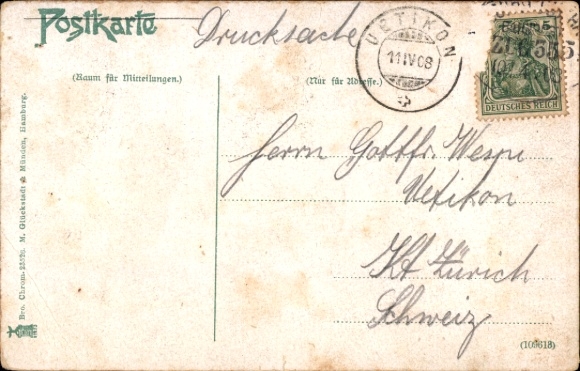 Postkarte
Drucksache
UETIKON
11 IV 08
DEUTSCHES REICH
(Raum für Mitteilungen.)
(Nur für Adresse.)
Herrn Gottfr. Wespi
Uetikon
Kt Zürich
Schweiz
Bro. Chrom-25529. M. Glückstadt & Münden, Hamburg.
(109618)